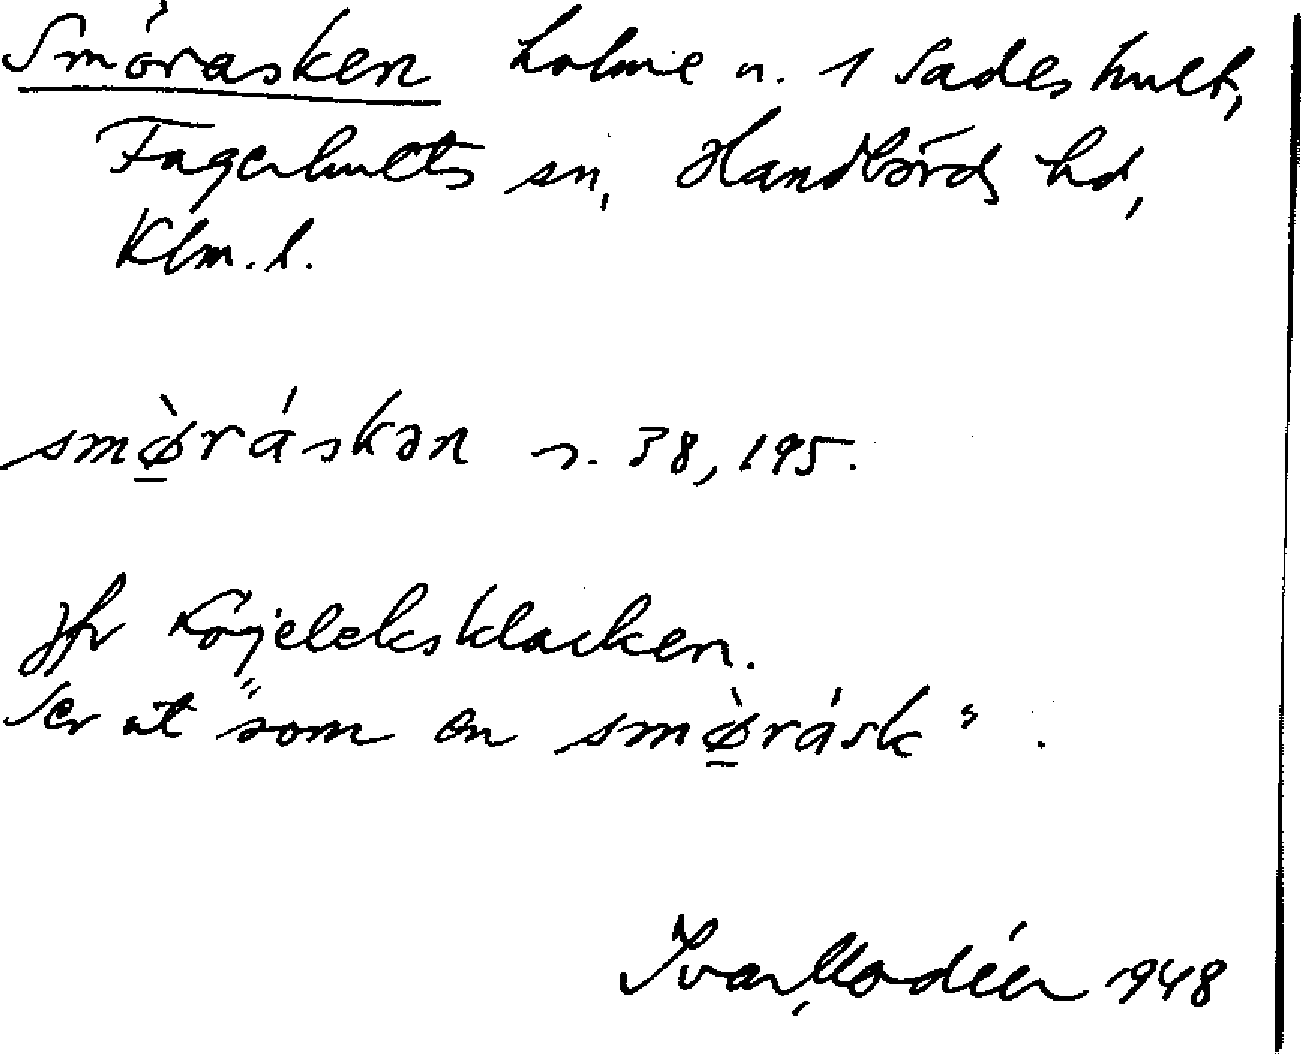 Smörasken holme n. 1 Sadeshult,
Fagerhults sn, Handbörds hd,
Klm. l.
smø̀ráskən s. 38, 195.
jfr Köjeleksklacken.
Ser ut "som en smø̀rásk".
Ivar Modéer 1948